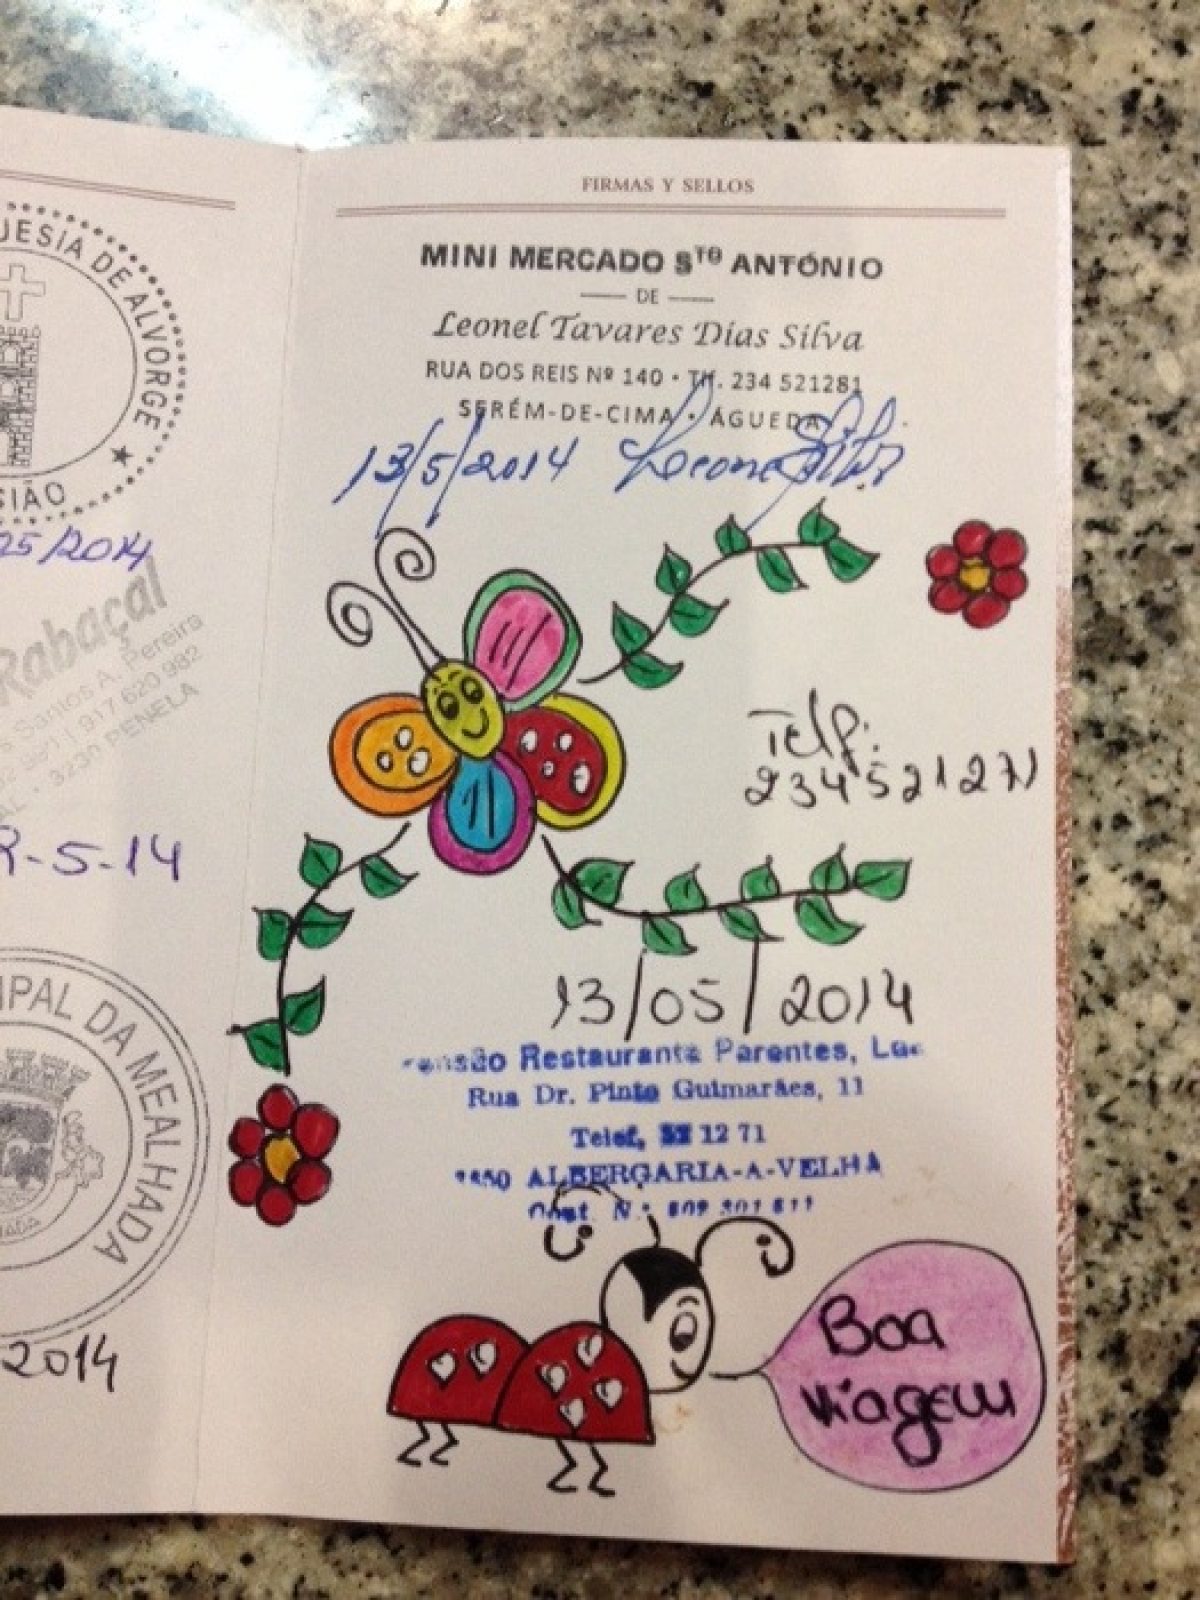 UESIA DE ALVORGE
SIÃO
25/2014
Rabaçal
Santos A. Pereira
917 620 982
PENELA
-5-14
IPAL DA MEALHADA
2014
FIRMAS Y SELLOS
MINI MERCADO STO ANTÓNIO
DE
Leonel Tavares Dias Silva
RUA DOS REIS Nº 140 • Tlf. 234 521281
SERÉM-DE-CIMA • ÁGUEDA
13/5/2014 Leonel Silva
Telf:
234521271
13/05/2014
Pensão Restaurante Parentes,
Rua Dr. Pinto Guimarães, 11
Telef. 52 12 71
ALBERGARIA-A-VELHA
Cont. N.:
Boa
viagem